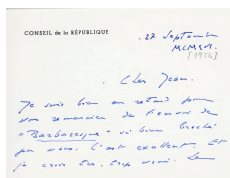 CONSEIL de la RÉPUBLIQUE
27 Septembre
[1956]
Cher Jean.
Je suis bien en retard pour
vous remercier de l'envoi de
"Barbaresque" si bien broché
par vous. C'est excellent. Et
je crois très, trop vrai. Le